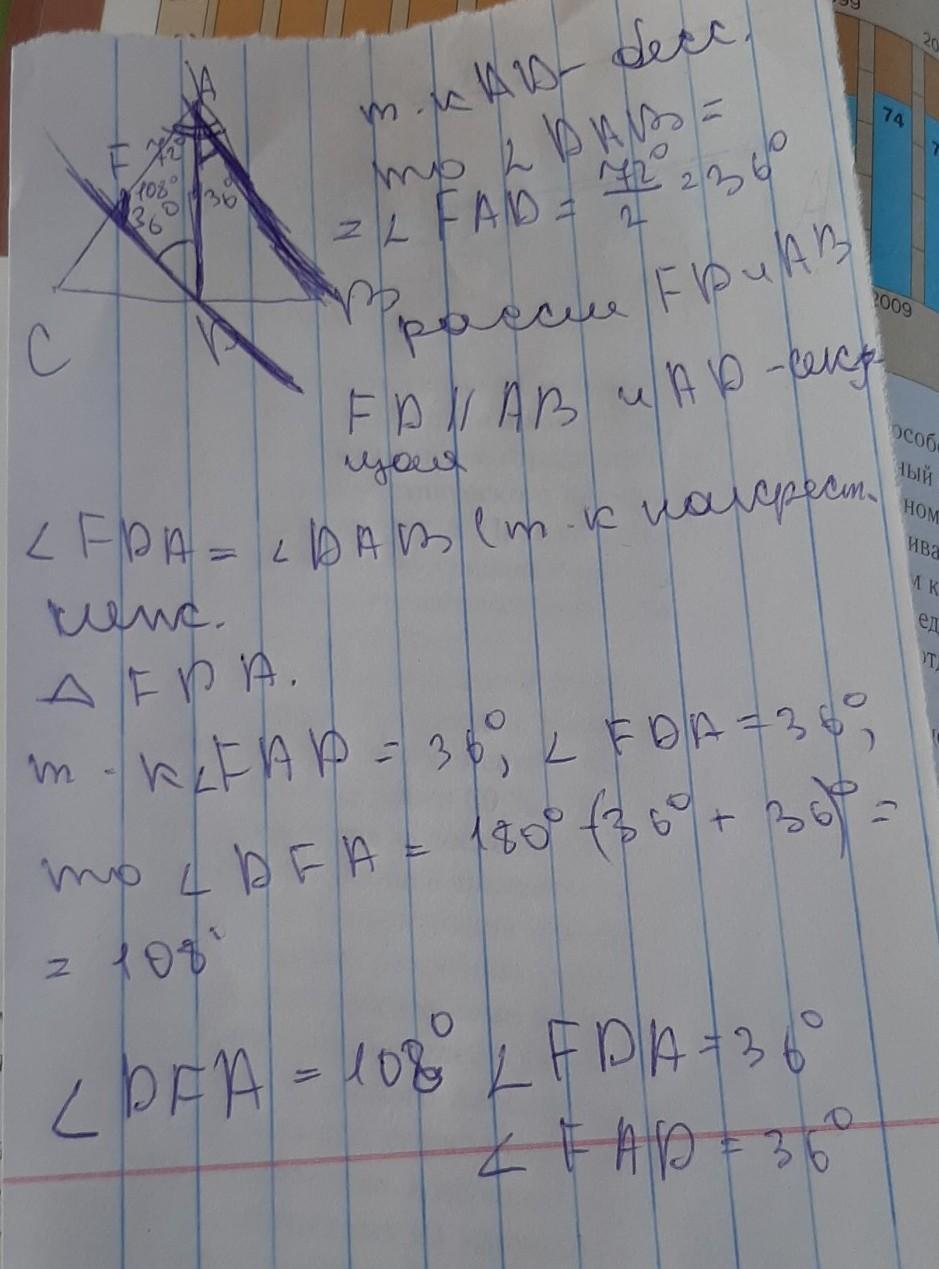 A
F
72°
108°
36°
36°
C
D
B
т.к AD - бисс.
то ∠DAB =
= ∠FAD = 72°/2 = 36°
рассм FD и AB
FD || AB и AD - секу
щая
∠FDA = ∠DAB (т.к накрест.
леж.
△ FDA.
т.к ∠FAD = 36°, ∠FDA = 36°,
то ∠DFA = 180° (36° + 36)° =
= 108°
∠DFA = 108° ∠FDA = 36°
∠FAD = 36°
74
2009
20
99
особ
ный
ном
ива
и к
ед